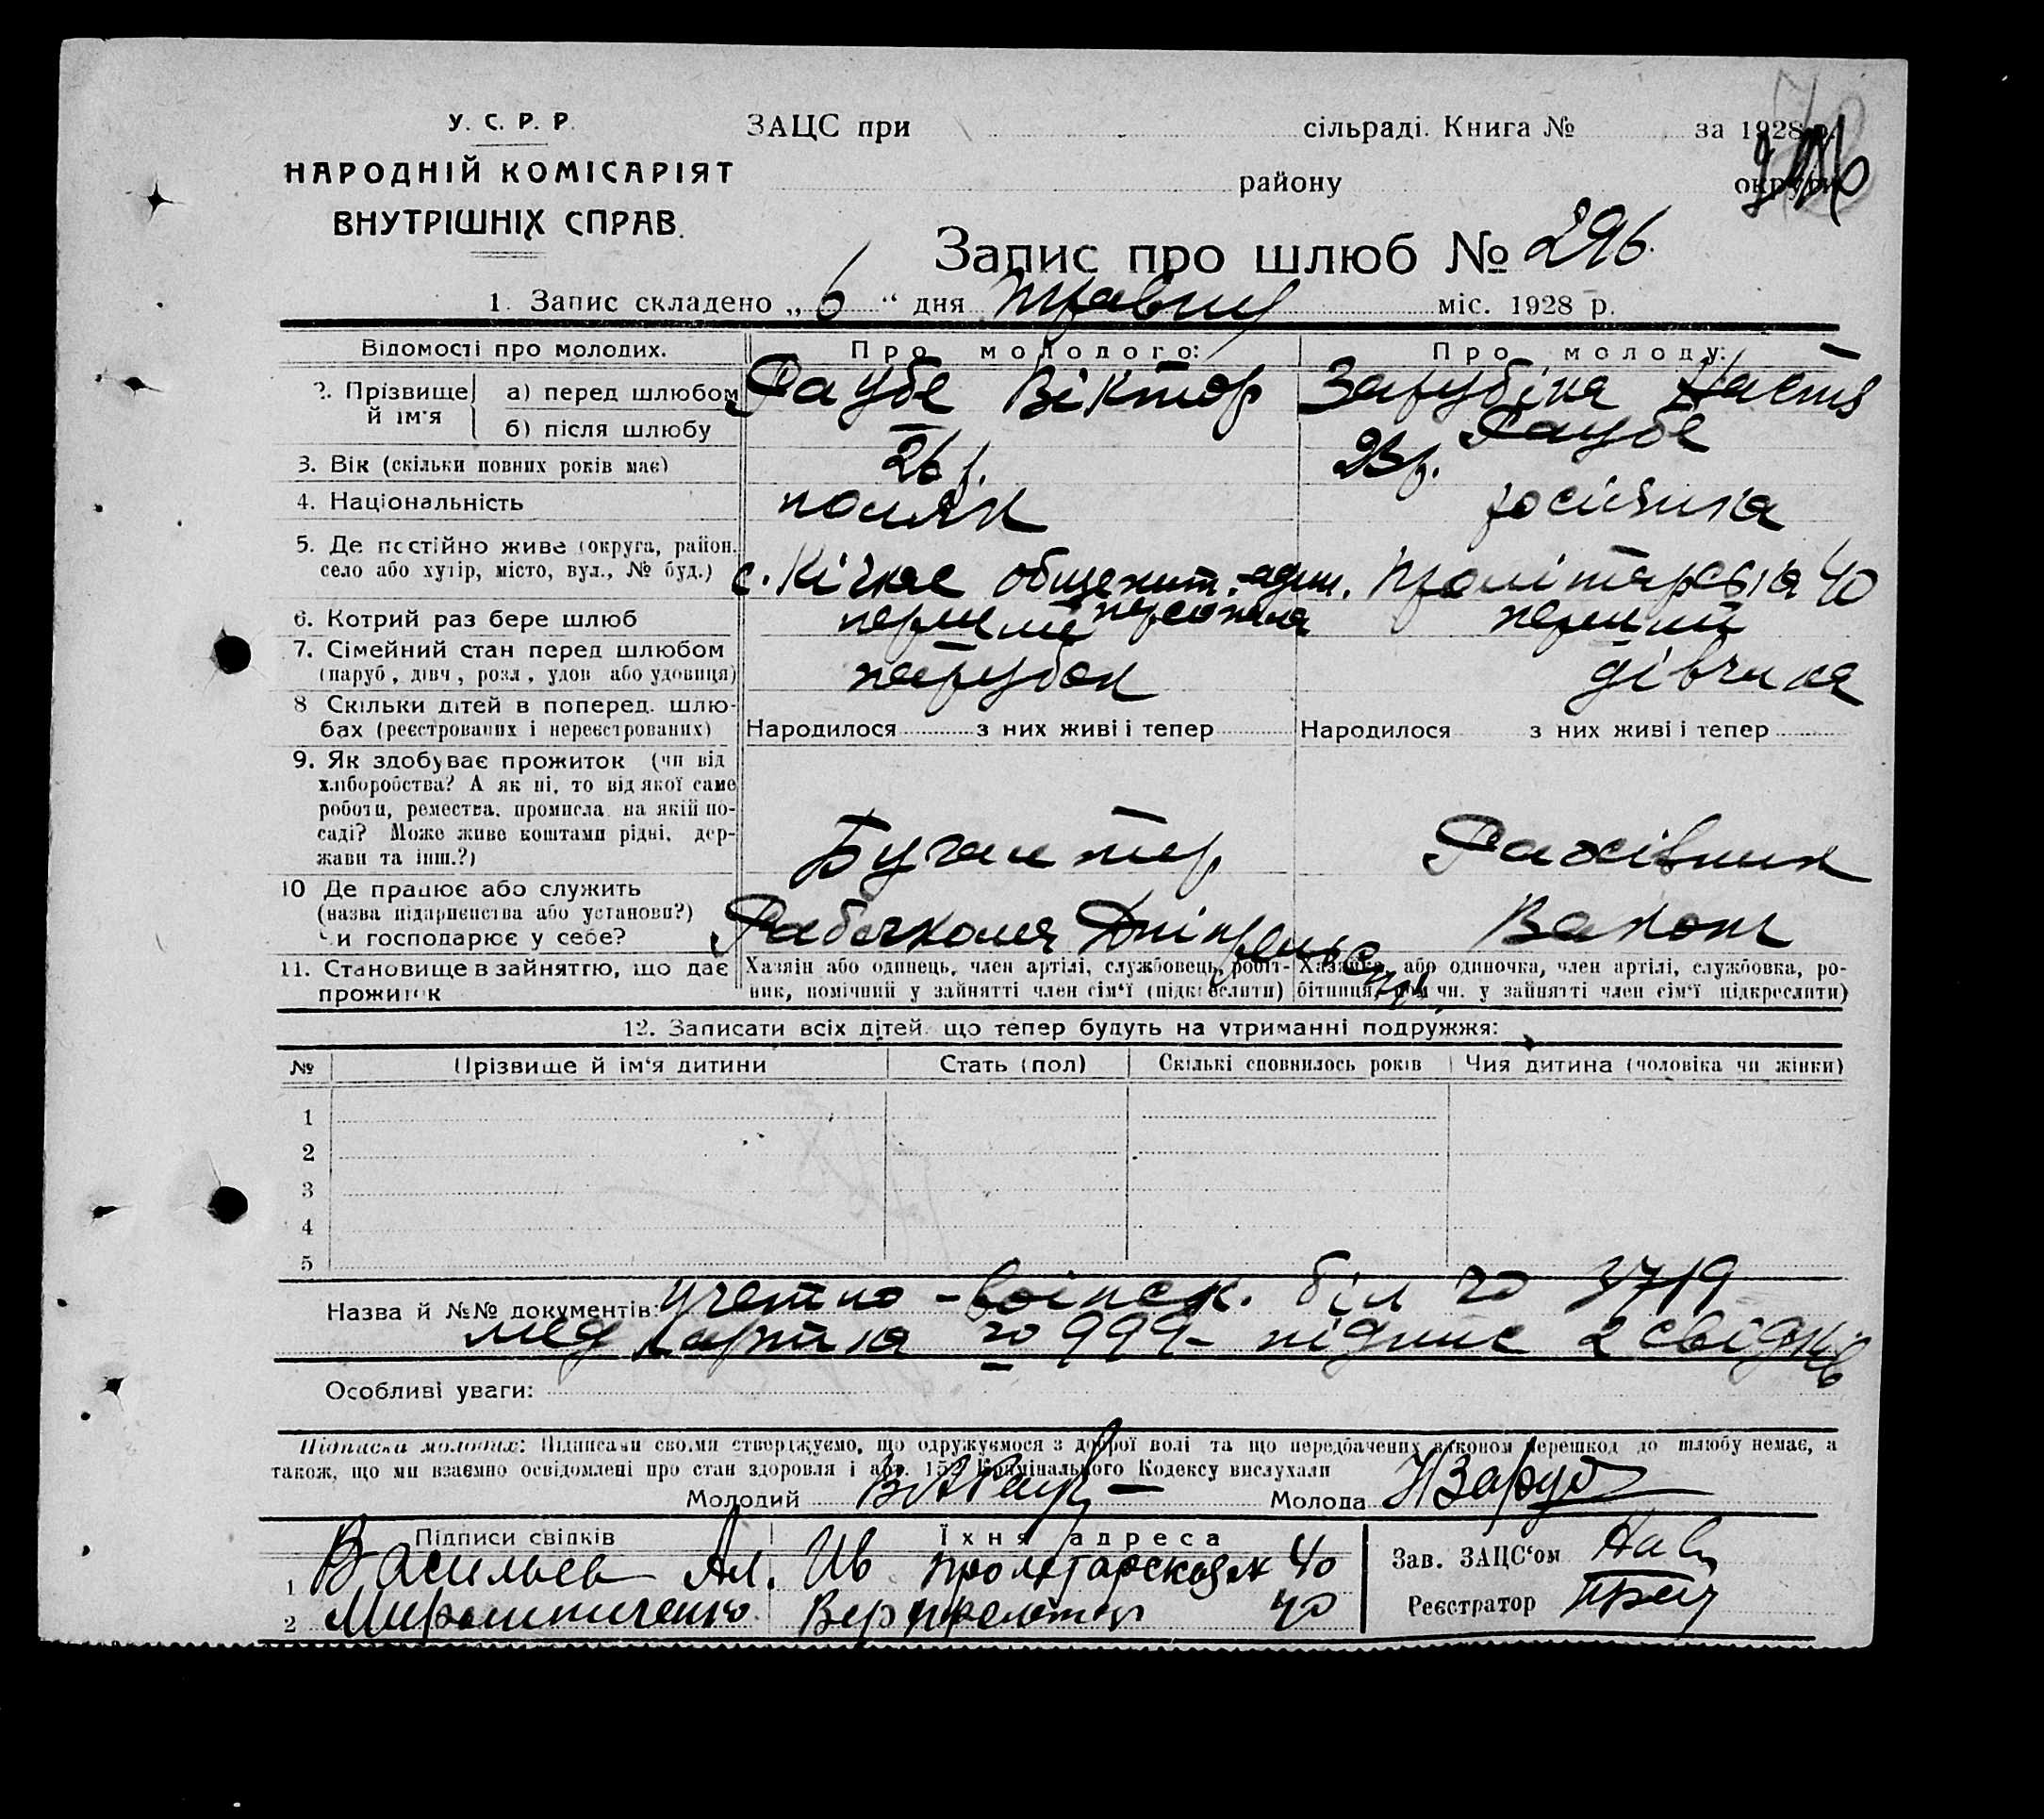 У. С. Р. Р.
НАРОДНІЙ КОМІСАРІЯТ
ВНУТРІШНІХ СПРАВ.
ЗАЦС при сільраді. Книга № за 1928 р.
району округи
Запис про шлюб № 296.
1. Запис складено „ 6 “ дня травня міс. 1928 р.
Відомості про молодих. Про молодого: Про молоду:
2. Прізвище й ім'я
а) перед шлюбом Раубе Віктор Зарубіна Настя
б) після шлюбу — Раубе
3. Вік (скільки повних років має) 26 р. 23 р.
4. Національність поляк росіянка
5. Де постійно живе (округа, район, село або хутір, місто, вул., № буд.) с. Кічкас общежит. адм. персонала Пролітарська 40
6. Котрий раз бере шлюб перший перший
7. Сімейний стан перед шлюбом (паруб., дівч., розл., удов. або удовиця) парубок дівчина
8 Скільки дітей в поперед. шлюбах (реєстрованих і нереєстрованих) Народилося з них живі і тепер Народилося з них живі і тепер
9. Як здобуває прожиток (чи від хліборобства? А як ні, то від якої саме роботи, ремества, промисла, на якій посаді? Може живе коштами рідні, держави та інш.?) Бугалтер Рахівник
10 Де працює або служить (назва підприємства або установи?) Чи господарює у себе?
11. Становище в зайняттю, що дає прожиток
Хазяїн або одинець, член артілі, службовець, робітник, помічний у зайнятті член сім'ї (підкреслити)
Хазяйка або одиночка, член артілі, службовка, робітниця, пом чн. у зайнятті член сім'ї підкреслити)
12. Записати всіх дітей, що тепер будуть на утриманні подружжя:
№ Прізвище й ім'я дитини Стать (пол) Скількі сповнилось років Чия дитина (чоловіка чи жінки)
1
2
3
4
5
Назва й №№ документів: учетно-воінск. біл № 3719
мед картка № 999 - підпис 2 свідків
Особливі уваги:
Підписка молодих: Підписами своїми стверджуємо, що одружуємося з доброї волі та що передбачених законом перешкод до шлюбу немає, а
також, що ми взаємно освідомлені про стан здоровля і арт. 152 Кримінального Кодексу вислухали
Молодий ВРаубе Молода НЗаруб
Підписи свідків Їхня адреса
1 Васильев Ал. Ив Пролетарская 40
2 Мирошниченко Вер 40
Зав. ЗАЦС'ом
Реєстратор